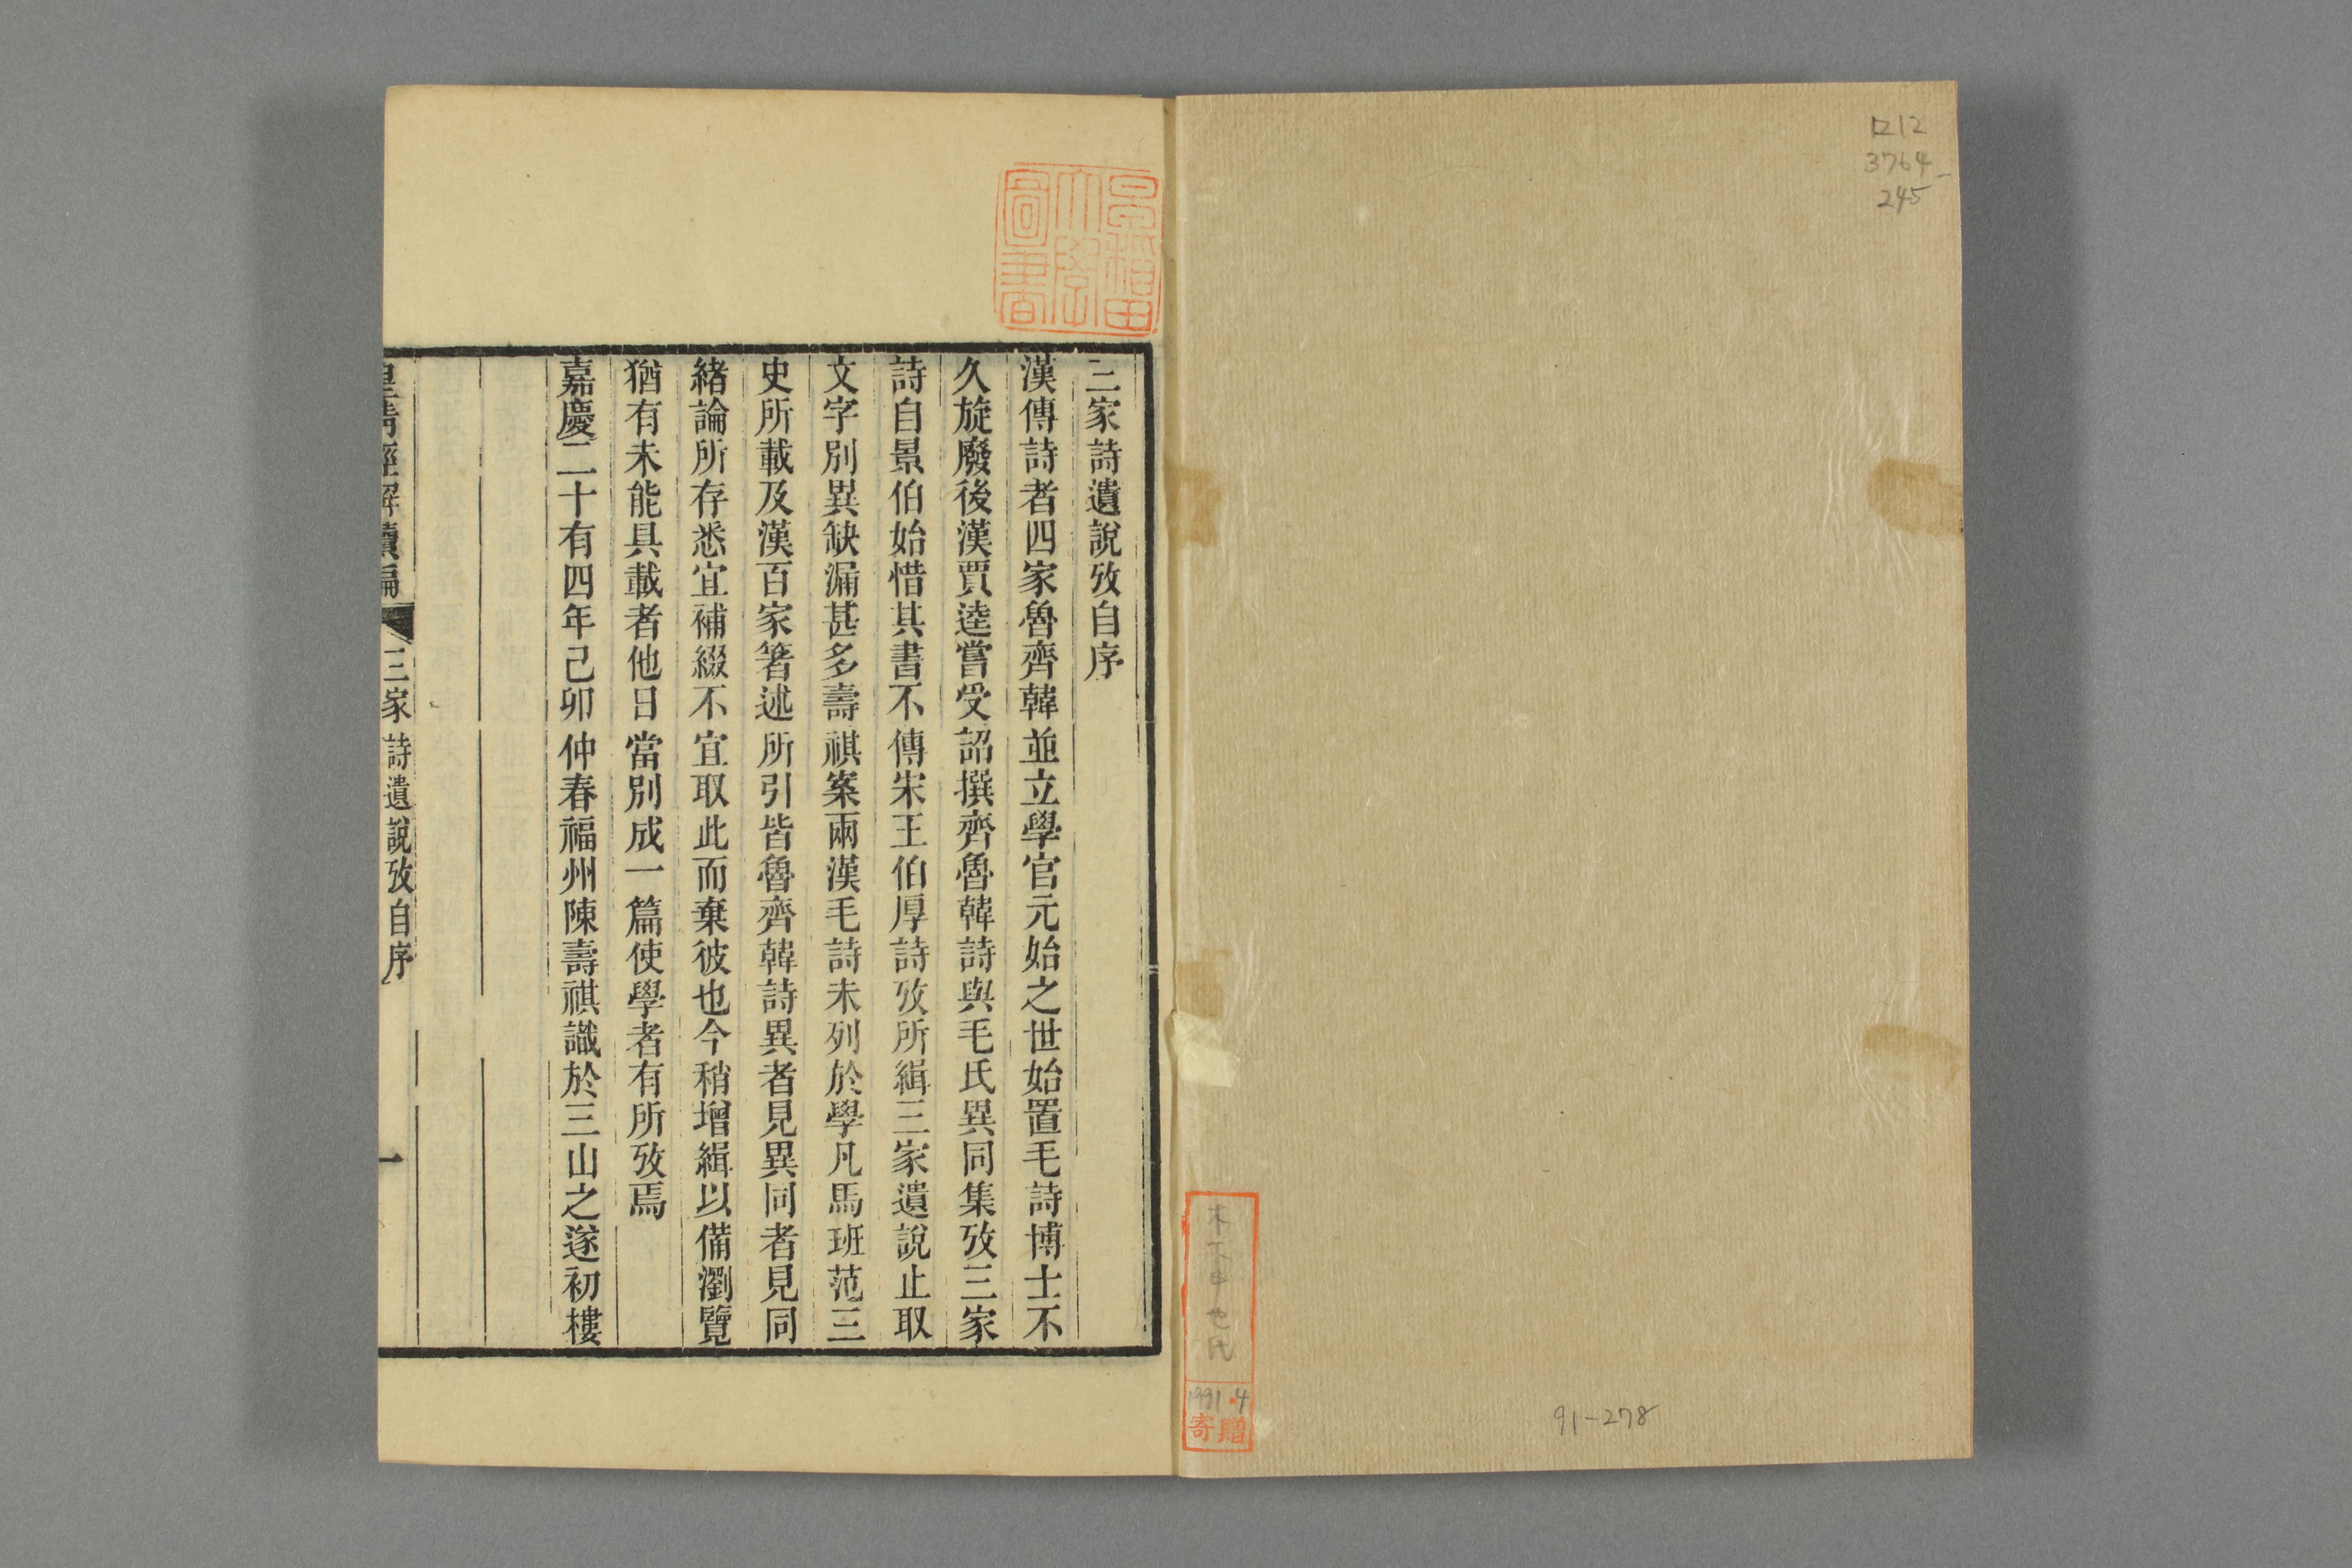 ロ212
3764
245
寄贈
1991.4
91-278
早稲田
大學
圖書
三家詩遺說攷自序
漢傳詩者四家魯齊韓並立學官元始之世始置毛詩博士不
久旋廢後漢賈逵嘗受詔撰齊魯韓詩與毛氏異同集攷三家
詩自景伯始惜其書不傳宋王伯厚詩攷所緝三家遺說止取
文字別異缺漏甚多壽祺案兩漢毛詩未列於學凡馬班范三
史所載及漢百家箸述所引皆魯齊韓詩異者見異同者見同
緒論所存悉宜補綴不宜取此而棄彼也今稍增緝以備瀏覽
猶有未能具載者他日當別成一篇使學者有所攷焉
嘉慶二十有四年己卯仲春福州陳壽祺識於三山之遂初樓
皇清經解續編
三家詩遺說攷自序
一